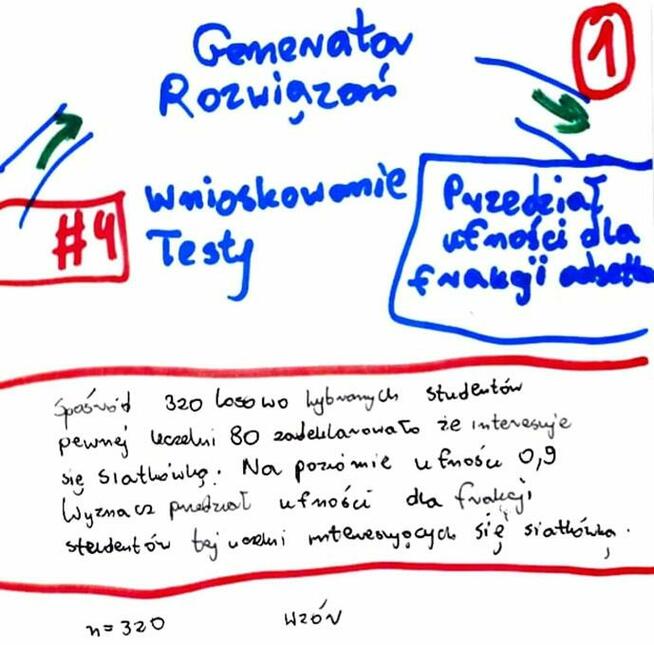 Generator
Rozwiązań
1
#4
Wnioskowanie
Testy
Przedział
ufności dla
frakcji odsetka
Spośród 320 losowo wybranych studentów
pewnej uczelni 80 zadeklarowało że interesuje
się siatkówką. Na poziomie ufności 0,9
Wyznacz przedział ufności dla frakcji
studentów tej uczelni interesujących się siatkówką.
n=320
WZÓR